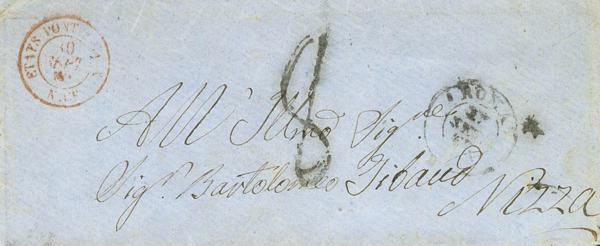 ETATS PONT
30
8
All' Illmo Sigre
Sigr. Bartolomeo Tibaud
Nizza